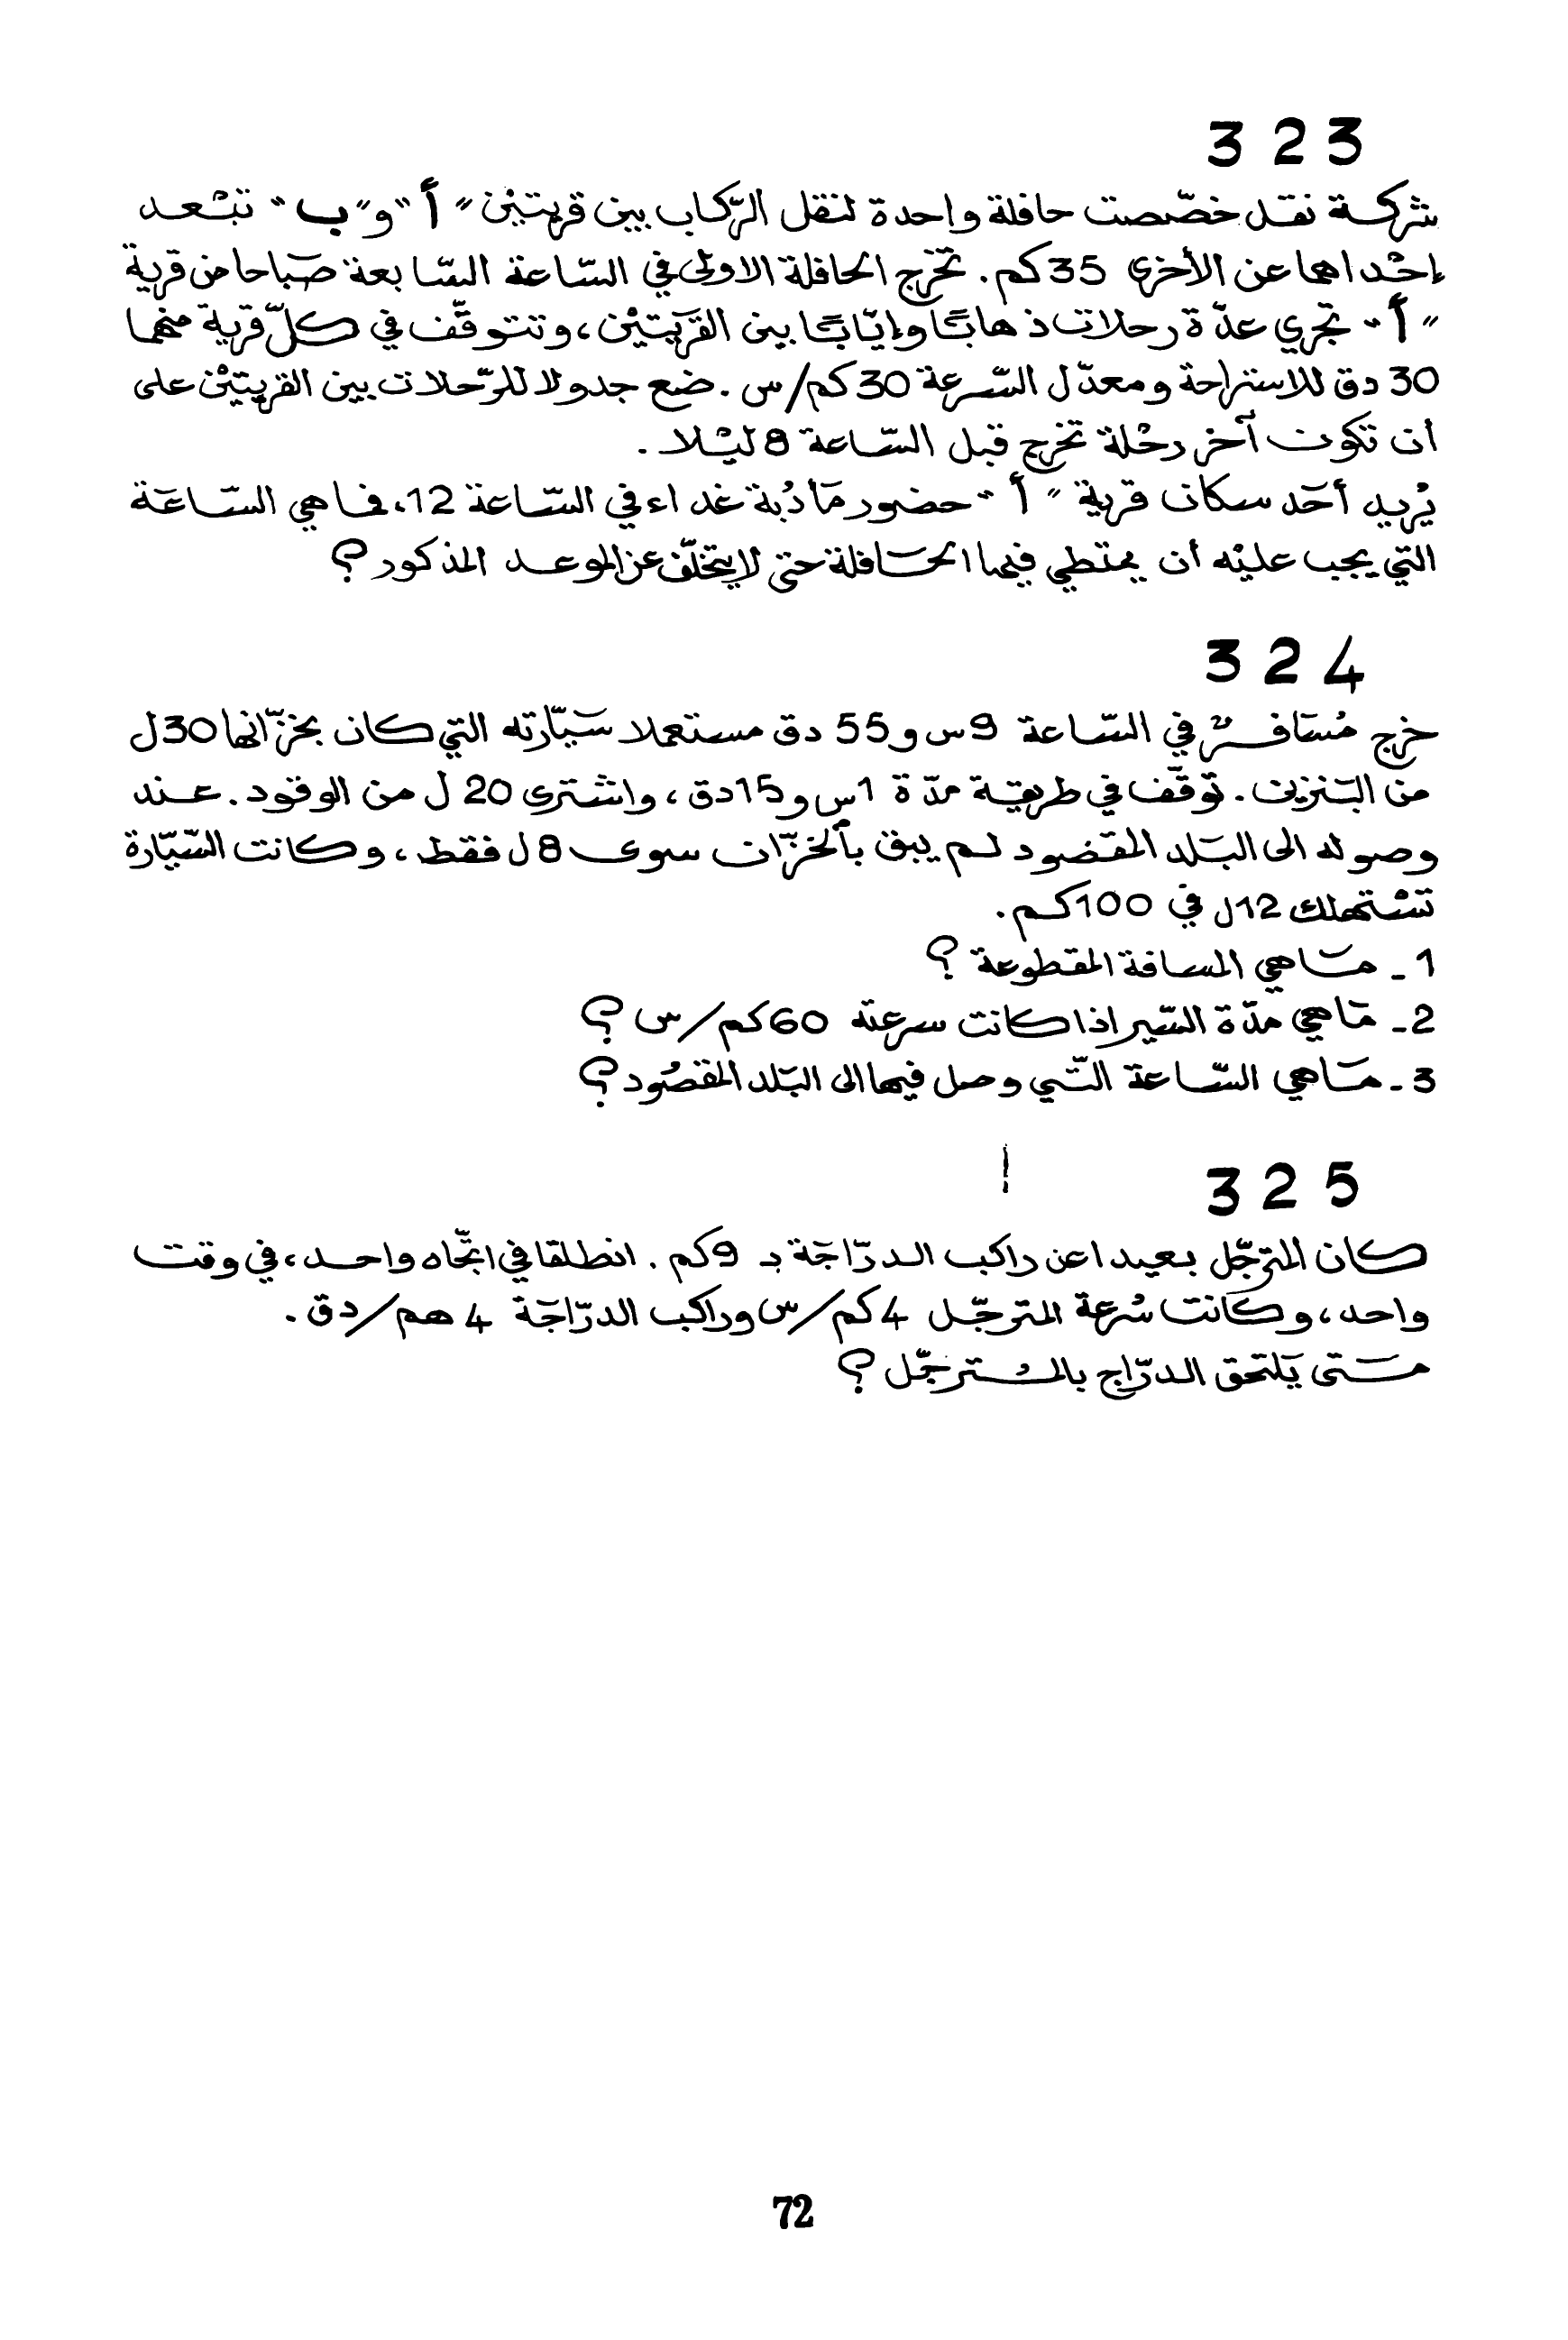 323
شركة نقل خصّصت حافلة واحدة لنقل الرّكاب بين قريتيْن "أ" و"ب" تبْعد
إحْداهما عن الأخرى 35 كم. تخرج الحافلة الاولى في السّاعة السّابعة صَباحا من قرية
"أ" تجري عدّة رحلات ذهابًا وإيّابًا بين القريَتيْن، وتتوقّف في كلّ قرية منهما
30 دق للاستراحة ومعدّل السّرعة 30 كم/س. ضع جدولا للرّحلات بين القريتيْن على
ان تكون آخر رحْلة تخرج قبل السّاعة 8 ليْلا.
يُريد أحَد سكان قرية "أ" حضور مَأدُبة غداء في السّاعة 12، فما هي السّاعَة
التي يجب عليْه أن يمتطي فيها الحَافلة حتى لا يتخلّف عن الموعد المذكور؟
324
خرج مُسَافرٌ في السّاعة 9س و55 دق مستعملا سَيّارته التي كان بخزّانها 30ل
من البَنزين. توَقّف في طريقه مدّة 1س و15دق، واشترى 20 ل من الوقود. عند
وصوله الى البَلد المقصود لم يبق بالخزّان سوى 8ل فقط، وكانت السّيّارة
تسْتهلك 12ل في 100كم.
1 - مَاهي المسافة المقطوعة؟
2 - مَاهي مدّة السّير اذا كانت سرعته 60كم/س؟
3 - مَاهي السّاعة التّي وصل فيها الى البَلد المقصُود؟
325
كان المترجّل بعيدا عن راكب الدرّاجَة بـ 9كم. انطلقا في اتّجاه واحد، في وقت
واحد، وكَانت سُرعة المترجّل 4كم/س وراكب الدرّاجَة 4 هم/دق.
مَتى يَلتحق الدرّاج بالمُترجّل؟
72